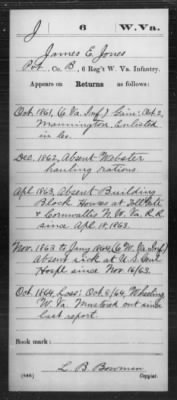 J 6 W.Va.
James E. Jones
Pvt, Co. B, 6 Reg't W. Va. Infantry.
Appears on
Returns as follows:
Oct. 1861, (6 Va. Inf.) Gain: Oct. 2,
Mannington, Enlisted
in Co.
Dec. 1862, Absent Webster
hauling rations.
Apl. 1863, Absent Building
Block Houses at Tollgate
& Cornwallis N.W. Va. R.R.
since Apl. 18, 1863.
Nov. 1863 to Jany 1864, (6 W. Va. Inf.)
absent sick at U.S. Genl
Hospl since Nov. 16/63.
Oct. 1864, Loss: Oct. 8/64, Wheeling
W. Va. Mustered out since
last report.
Book mark:
L B Bowman
(546) Copyist.